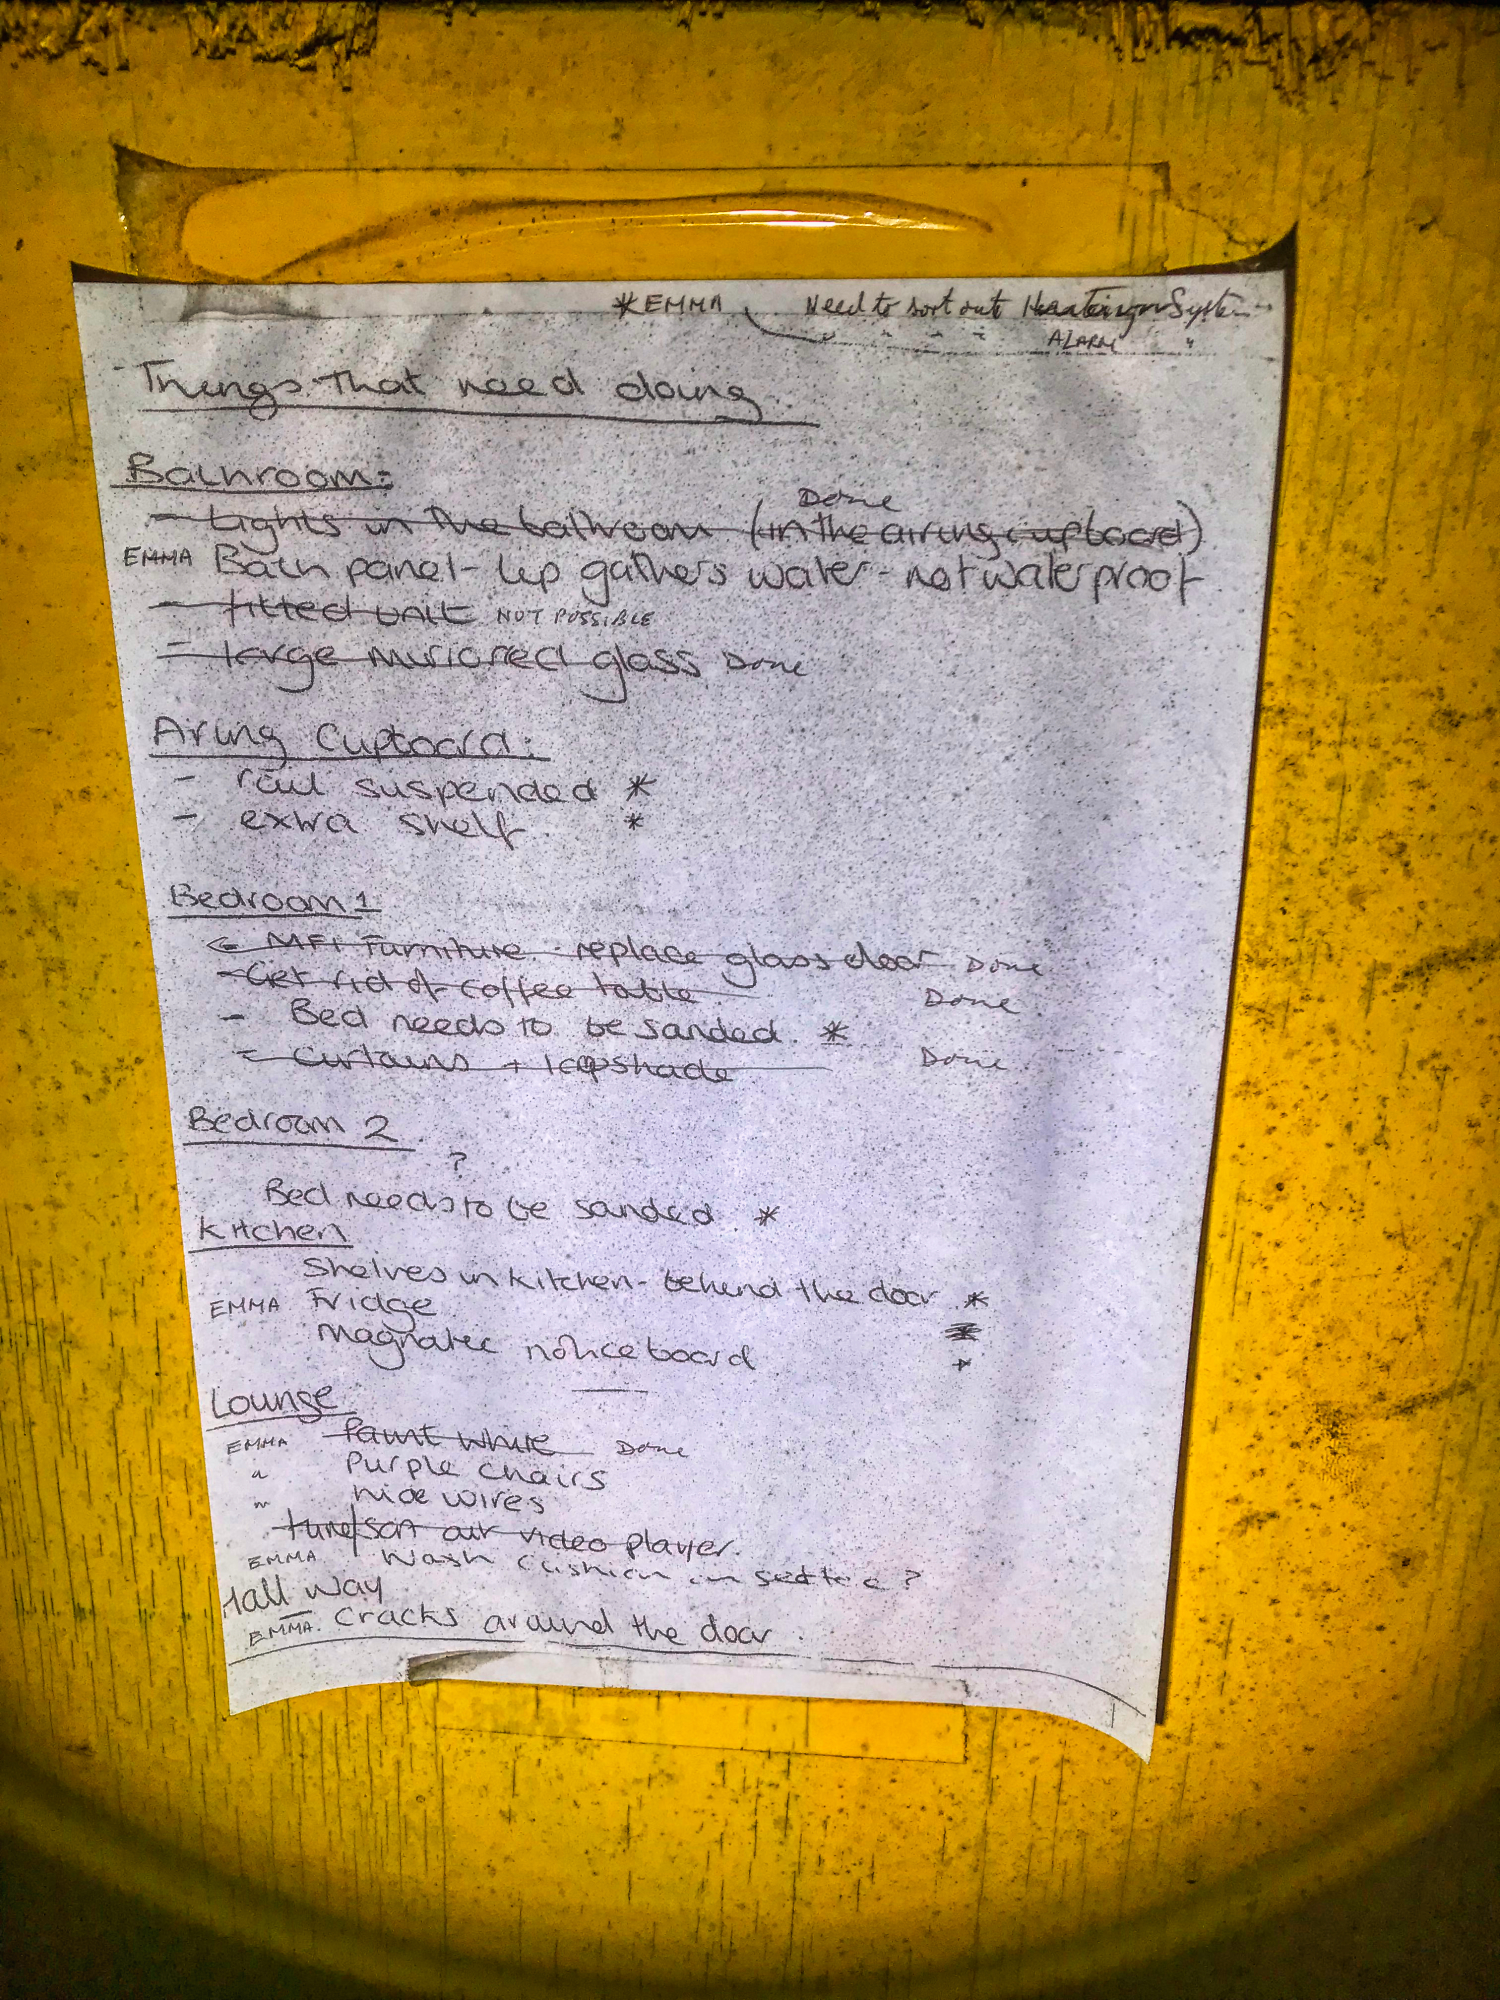 *EMMA Need to sort out Heating System
" " " " ALARM "
Things That need doing
Bathroom:
Done
- Lights in the bathroom (in the airing cupboard)
EMMA Bath panel - Lip gathers water - not waterproof
- fitted unit NOT POSSIBLE
- large mirrored glass Done
Airing Cupboard:
- rail suspended *
- extra shelf *
Bedroom 1
- MFI Furniture - replace glass door Done
- Get rid of coffee table Done
- Bed needs to be sanded. *
- Curtains + lapshade Done
Bedroom 2
?
Bed needs to be sanded *
Kitchen
Shelves in kitchen - behind the door *
EMMA Fridge *
Magnatec notice board *
Lounge
EMMA Paint white Done
" Purple chairs
" hide wires
tune/sort out video player.
EMMA Wash cushion on settee ?
Hall Way
EMMA. Cracks around the door.